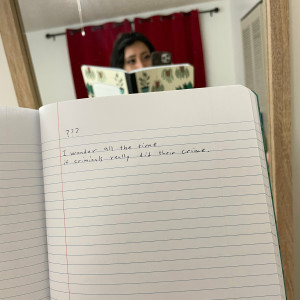 ???
I wonder all the time
if criminals really did their crime.